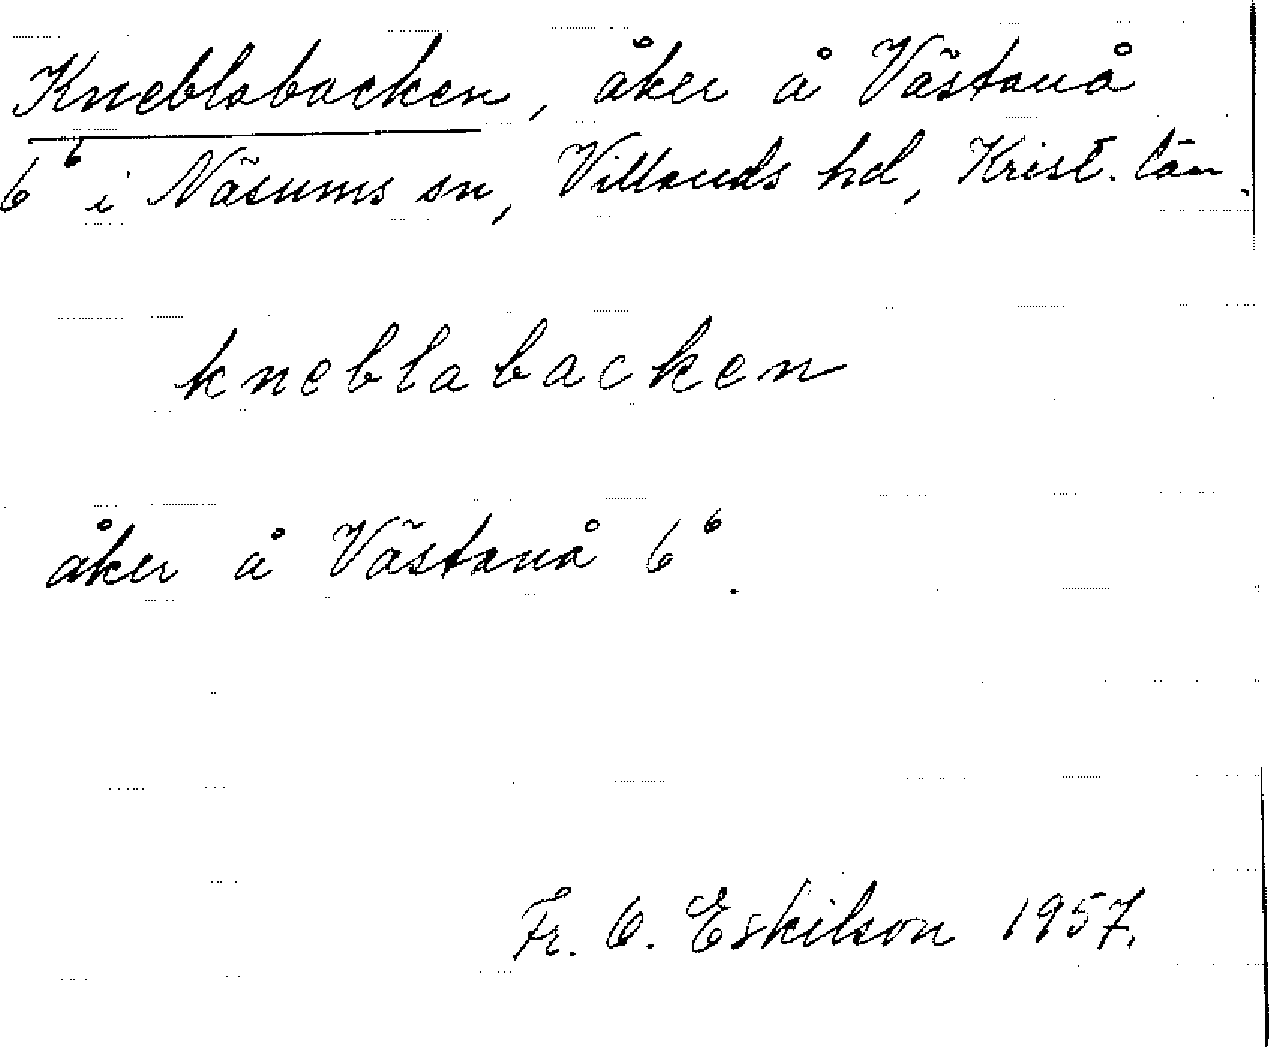 Kneblabacken, åker å Västanå
6⁶ i Näsums sn, Villands hd, Krist. län.
kneblabacken
åker å Västanå 6⁶.
Fr. O. Eskilson 1957.